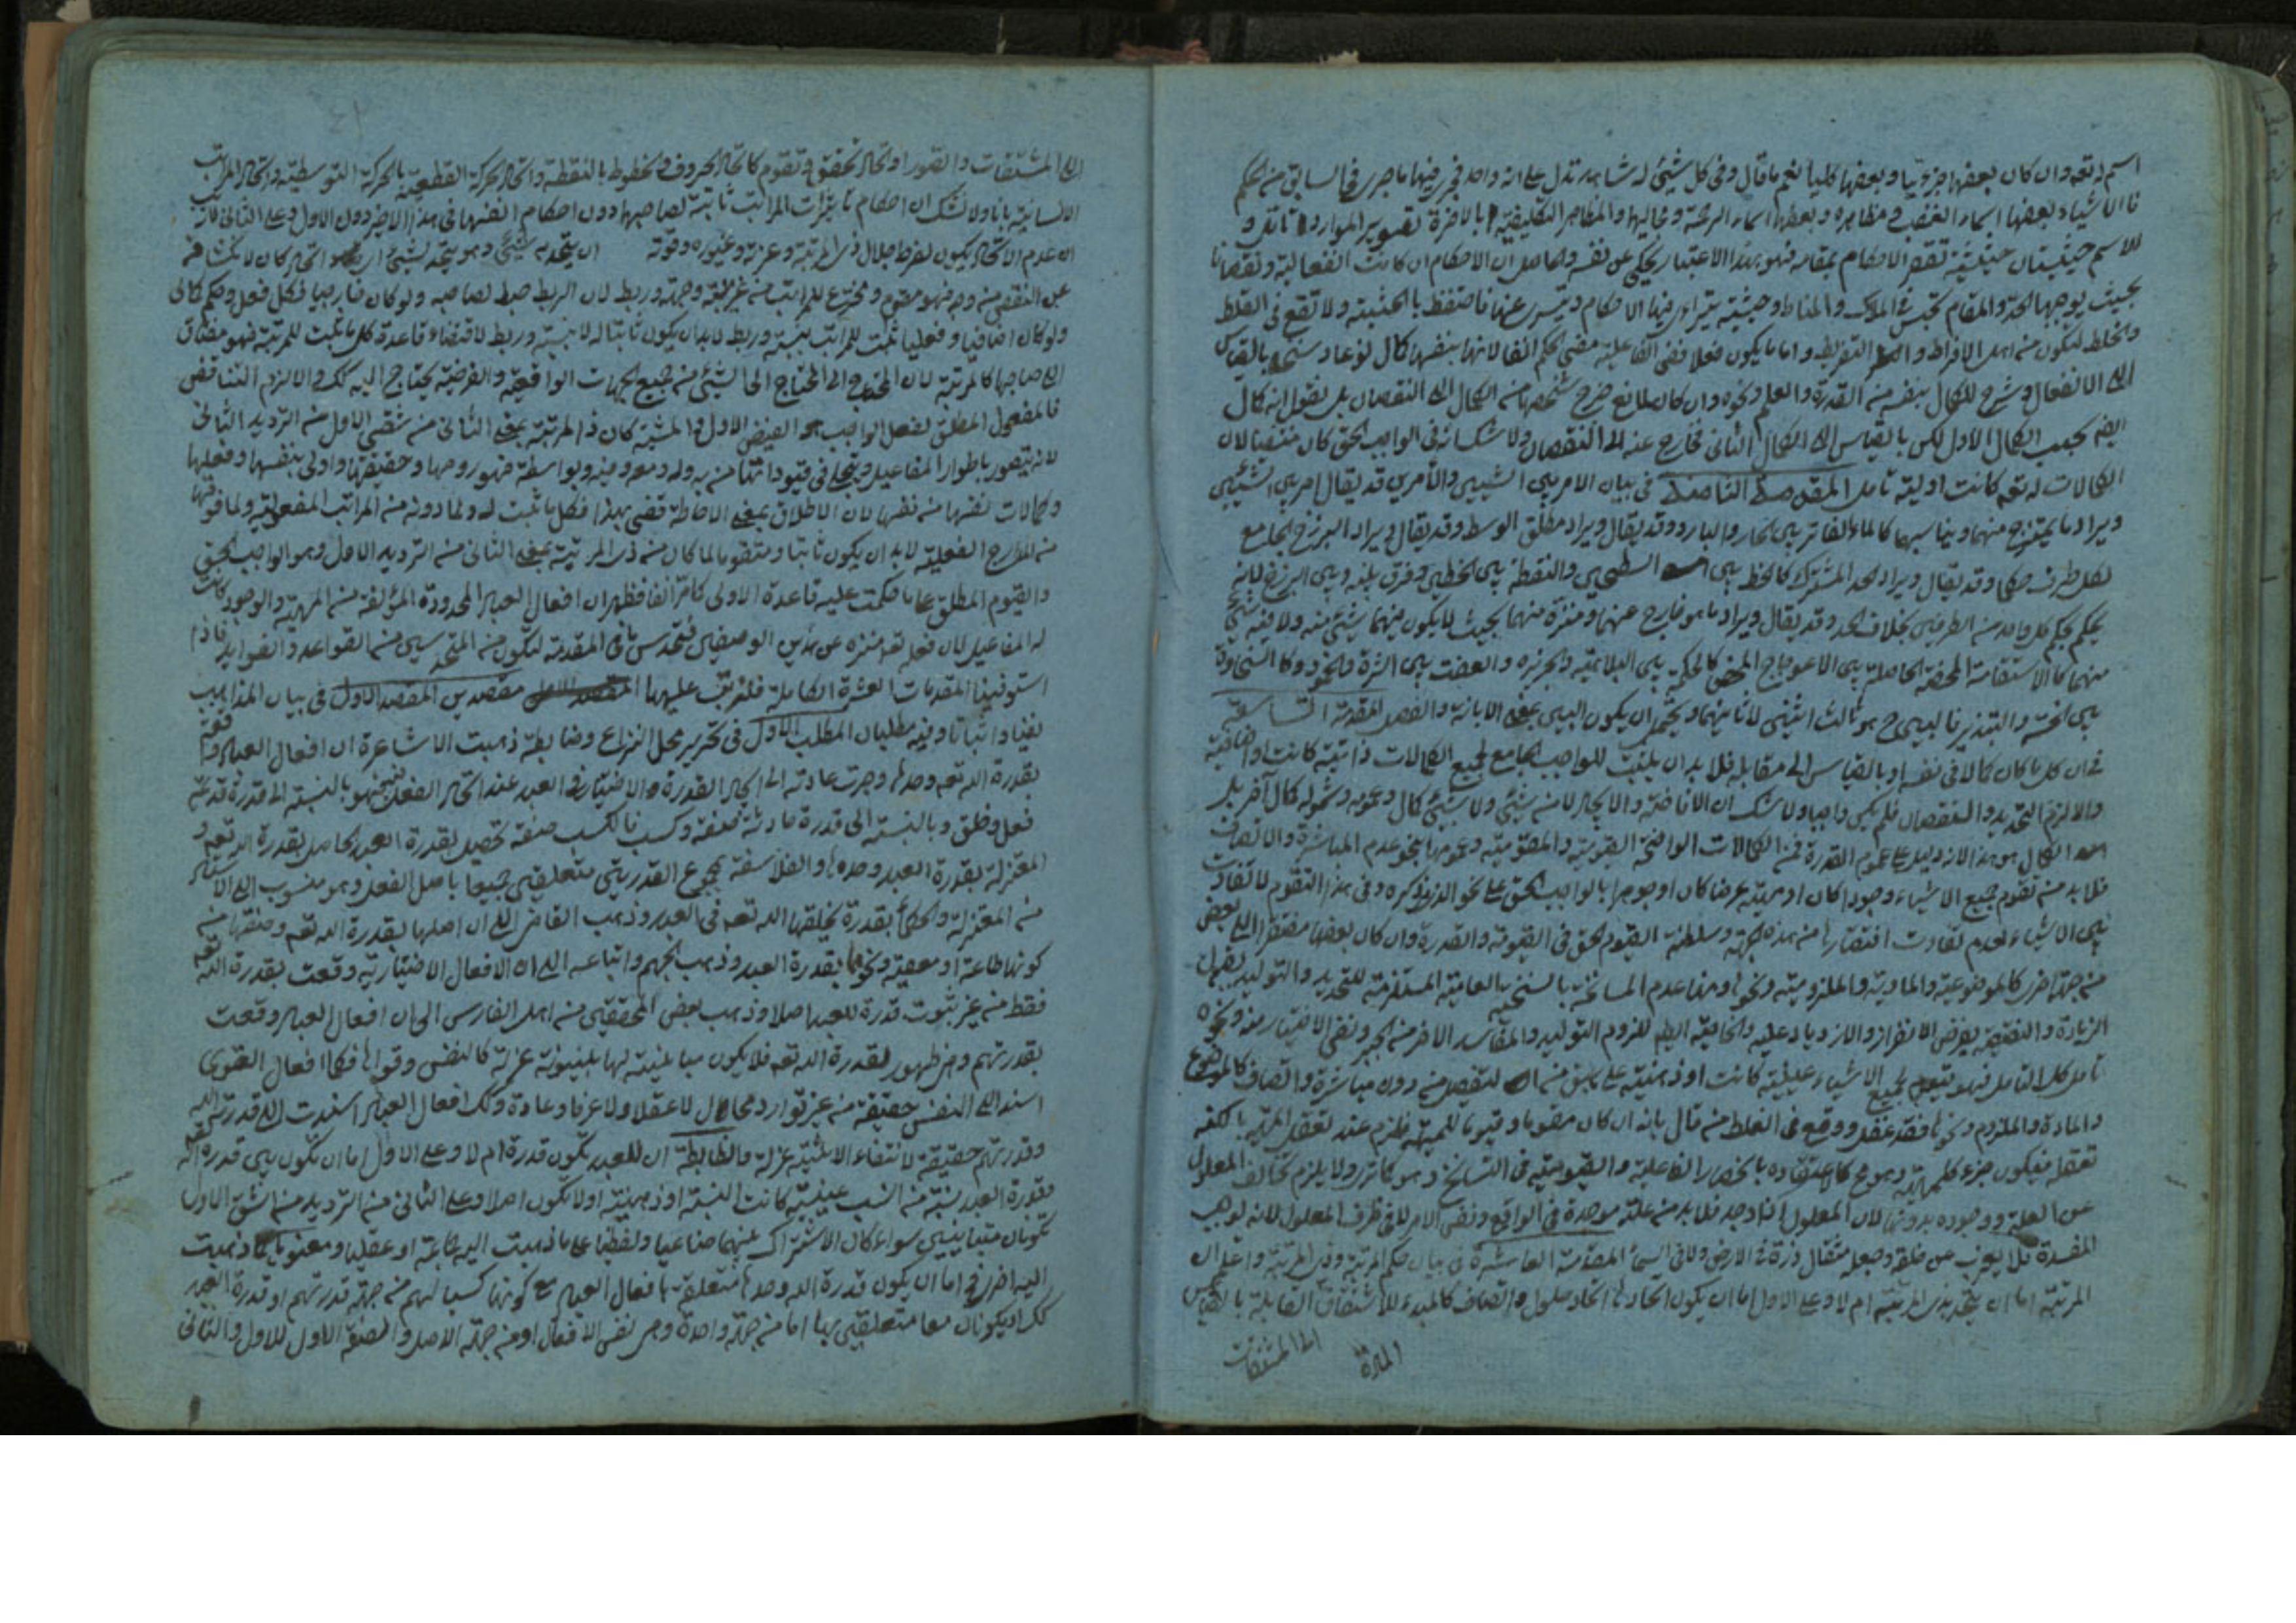 اسم له تعه وان كان بعضها جزويا وبعضها كليا نعم ما قال وفى كل شيئ له شاهد تدل على انه واحد فجرى فيها ما جرى فى السابق من الحكم
فالاشياء بعضها اسماء الغضب فى مظاهره وبعضها اسماء الرحمة و مجاليها والمظاهر التكليفية
للاسم حيثيتان حيثية تقتضى الاحكام بمقامه فهو بهذا الاعتبار يحكى عن نفسه والحاصل ان الاحكام ان كانت انفعالية ونقصانا
بحيث يوجبها الحد والمقام تحبس فى الملاك والمناط وحيثية يتراى فيها الاحكام فاحتفظ بالحيثية ولا تقع فى الغلط
والخلط لتكون من اهل الافراط و التفريط واما ما يكون فعلا ففى الفاعلية مضى الحكم انفا لانها بنفسها كمال
الى الانفعال وشرح للكمال بنفسه من القدرة والعلم ونحوه وان كان من الكمال الى النقصان بل نقول انه كمال
الكمال الاول لكن بالقياس الى الكمال الثانى فخارج عنه الى النقصان ولا شك انه فى الواجب الحق كان منتفيا لان
الكمالات له تعه كانت اولية تامل فى بيان الامر بين الشيئين والامرين قد يقال امر بين الشيئين
ويراد ما يمتزج منهما ويناسبهما كالماء الفاتر بين الحار والبارد وقد يقال ويراد مطلق الوسط وقد يقال ويراد البرزخ الجامع
لكل طرف حكما وقد يقال ويراد الحد المشترك كالخط بين السطحين والنقطة بين الخطين وفرق بينه وبين البرزخ لانه
يحكم بحكم كل واحد من الطرفين بخلاف الحد وقد يقال ويراد ما هو خارج عنهما ومنزه منهما بحيث لا يكون فيهما شيئ منه ولا فيه شيئ
منهما كالاستقامة المحضة الحاصلة بين الاعوجاج المحض كالحكمة بين البلاهة والجربزة والعفة بين الشره والخمود وكالسخاوة
بين الخسة والتبذير فالبين ح هو ثالث اثنين لا ثانيهما ويحتمل ان يكون البين بمعنى الابانة والفصل المقدمة التاسعة
فى ان كل ما كان كمالا فى نفسه او بالقياس الى مقابله فلا بد ان يثبت للواجب الجامع لجميع الكمالات ذاتية كانت او اضافية
والا لزم التحديد والنقصان فلم يكن واجبا ولا شك ان الافاضة والايجاد لا من شيئ ولا بشيئ كمال وعمومه وشموله كمال آخر بل
الكمال هو هذا لانه دليل على عموم القدرة فمن الكمالات الواضحة القيومية والمقومية وعمومها بنحو عدم المباشرة والاتصاف
فلا بد من تقوم جميع الاشياء وجودا كان او مهية عرضا كان او جوهرا بالواجب الحق على نحو الذى ذكره وفى هذا التقوم لا تفاوت
بين الاشياء لعدم تفاوت افتقارها من هذه الجهة وسلطنة القيوم الحق فى القيومة والقدرة وان كان بعضها مفتقرا الى بعض
من جهة اخرى كالموضوعية والمادية والملزومية ونحوها عدم المسانخة بالسنخية العامية المستلزمة للتحديد والتوليد بقبول
الزيادة والنقيصة بفرض الافراز والازدياد عليه ايضا للزوم التوليد والمفاسد الاخر من الجبر ونفى الاختيار منه ونحوه
تامل كل التامل فهو يتعلق بجميع الاشياء عينية كانت او ذهنية على من دون مباشرة واتصاف كالموضوع
والمادة والملزوم ونحوها فقد غفل ووقع فى الغلط من قال بانه ان كان مقوما وقيوما للمهية فلزم عند تعقل المهية بالكنه
تعقله فيكون جزء كلمهية وهو مح كاعتقاده بانحصار الفاعلية والقيومية فى التسانخ وهو كما ترى ولا يلزم تخالف المعلول
عن العلة ووجوده بدونها لان المعلول اذا وجد فلا بد من علة موجدة فى الواقع ونفس الامر للفى ظرف المعلول لانه لوهب
المفسدة فلا يعزب عن خلقه وجعله مثقال ذرة فى الارض ولا فى السماء المقدمة العاشرة فى بيان حكم المرتبة وذى المرتبة واعلم ان
المرتبة اما ان يتحد بذى المرتبة ام لا وعلى الاول اما ان يكون اتحادها اتحاد حلول واتصاف كالمبدء للاشتقاق القابلة بالقياس
الى المشتقات
المادة
الى المشتقات والصور او اتحاد تحقق وتقوم كاتحاد الحروف والخطوط بالنقطة واتحاد الحركة القطعية بالحركة التوسطية واتحاد المراتب
الانسانية بانا ولا شك ان احكام المراتب ثابتة لصاحبها دون احكام انفسها فى هذا الاخير دون الاول وعلى الثانى لان
ان عدم الاتحاد يكون لفرط جلال ذى المرتبة وعزته وغيوره وقوته ان يتحد به شيئ وهو يتحد بشيئ اتحاد كان لا
عن النقص منه وجه فهو مقوم ومخترع للمراتب من غير جهة وربط لان الربط ضبط لصاحبه ولو كان خارجيا فكل فعل وحكم كمالى
ولو كان اضافيا وفعليا تثبت للمراتب بنسبة وربط لابد ان يكون ثابتا له لا بنسبة وربط لاقتضاء قاعدة كل ما يثبت للمرتبة فهو مضاف
الى صاحبها كالمرتبة لان المحتاج الى المحتاج الى الشيئ من جميع الجهات الواقعية والفرضية يحتاج اليه كك والا لزم التناقض
فالمفعول المطلق لفعل الواجب هو الفيض الاول والمشية كان ذا المرتبة بمعنى الثانى من شقى الاول من الترديد الثانى
لانه يتصور باطوار المفاعيل ويتجلى فى قيوداتها من به وله ومعه وفيه وبواسطة فهو روحها وحقيقتها واولى بنفسها وفعلها
وكمالات نفسها من نفسها لان الاطلاق بمعنى الاحاطة قضى بهذا فكل ما يثبت له ولما دونه من المراتب المفعولية ولما فوقها
من المدارج الفعلية لا بد ان يكون ثابتا ومتقوما لما كان من ذى المرتبة بمعنى الثانى من الترديد الاول وهو الواجب الحق
والقيوم المطلق على ما حكمت عليه قاعدة الاولى كما مر انفا فظهر ان افعال العباد المحدودة المؤلفة من المهية والوجود كانت
له المفاعيل لان فعله تعه منزه عن هذين الوصفين فتحدس ما فى المقدمة لتكون من المتحدسين من القواعد والفوايد فاذا
استوفينا المقدمات العشرة الكاملة فلنرتب عليها مقصدين المقصد الاول فى بيان المذاهب
نفيا واثباتا وفيه مطلبان المطلب الاول فى تحرير محل النزاع وضابطه ذهبت الاشاعرة ان افعال العباد واقعة
بقدرة الله تعه وحدها وجرت عادته الى ايجاد القدرة والاختيار فى العبد عند ايجاد الفعل فيه فهو بالنسبة الى قدرة قدمية
فعل وخلق وبالنسبة الى قدرة حادثة صفة وكسب فالكسب صفة تحصل بقدرة العبد الحاصل بقدرة الله تعه و
المعتزلة بقدرة العبد وحدها والفلاسفة بمجموع القدرتين متعلقتين جميعا باصل الفعل وهو منسوب الى الاستاد
من المعتزلة والحكماء بقدرة يخلقها الله تعه فى العبد وذهب القاضى الى ان اصلها بقدرة الله تعه وصفتها من
كونها طاعة او معصية ونحوها بقدرة العبد وذهب الجهم واتباعه الى ان الافعال الاختيارية وقعت بقدرة الله تعه
فقط من غير ثبوت قدرة للعبد اصلا وذهب بعض المحققين من اهل الفارس الى ان افعال العباد وقعت
بقدرتهم وهى ظهور لقدرة الله تعه فلا يكون مباينة لها بينونة عزلة كالنفس وقواها فكما افعال القوى
اسند الى النفس حقيقة من غير توارد محال لا عقلا ولا عرفا وعادة وكك افعال العباد اسندت الى قدرة الله
وقدرتهم حقيقة لانتفاء الاثنينية عزلة والضابطة ان للعبد تكون قدرة ام لا وعلى الاول اما ان تكون بين قدرة الله تعه
وقدرة العبد نسبة من النسب عينية كانت النسبة او ذهنية او لا تكون اصلا وعلى الثانى من الترديد من الشق الاول
تكونان متباينين سواء كان الاشتراك بينهما صناعيا ولفظيا على ما ذهبت اليه جماعة او عقليا ومعنويا كما ذهبت
اليه اخرى فح اما ان يكون قدرة الله وحدها متعلقة بافعال العباد مع كونها كسبا لهم من جهة قدرتهم او قدرة العبد
كك او يكونان معا متعلقين بها اما من جهة واحدة وهى نفس الافعال او من جهة الاصل والصفة الاول للاول والثانى